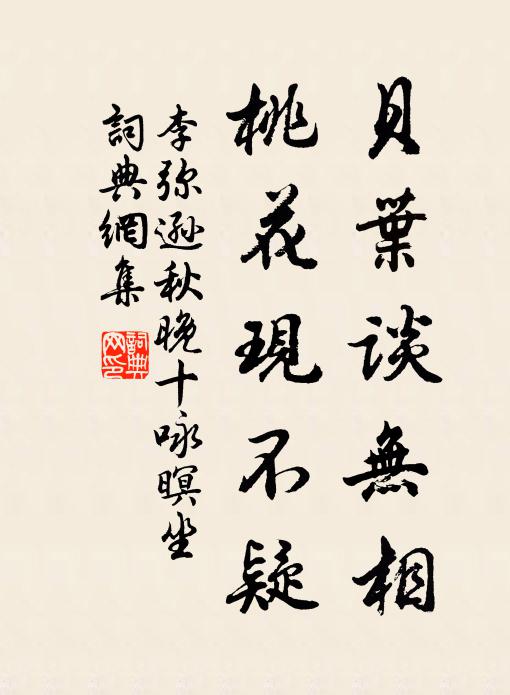 貝葉談無相
桃花現不疑
李弥遜秋晚十咏暝坐
詞典網集
詞典網印